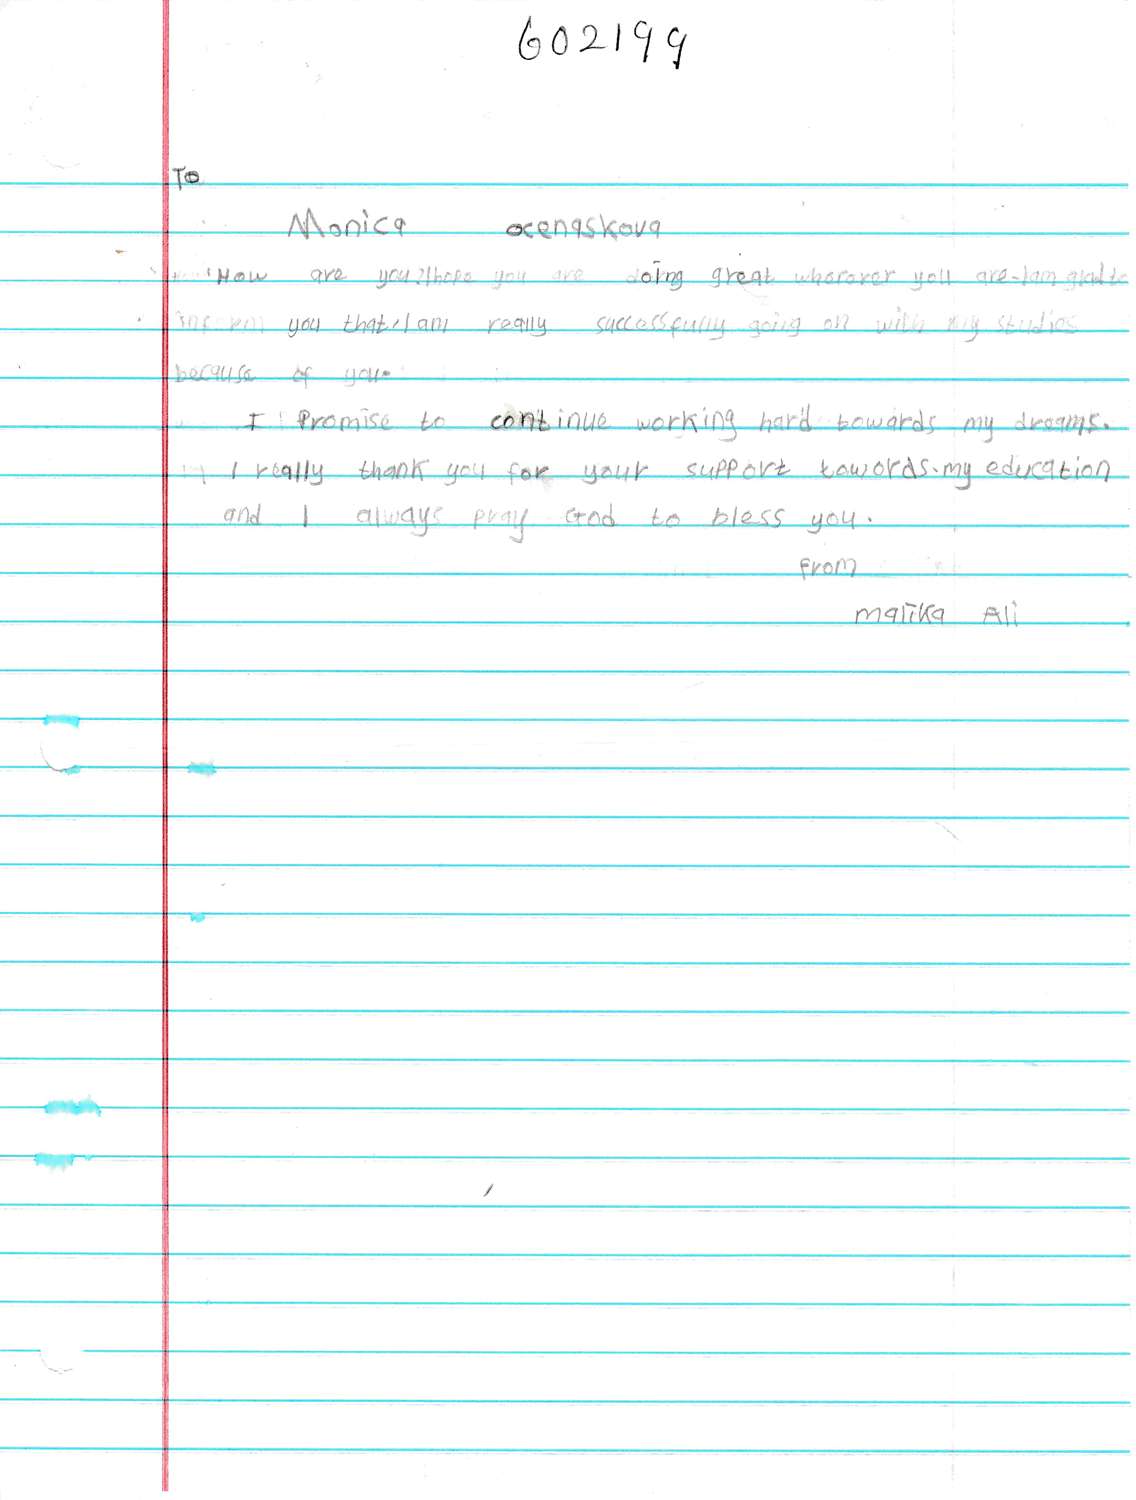 602199
To
Monica ocenaskova
How are you? I hope you are doing great wherever you are. I am glad to
inform you that, I am really successfully going on with my studies
because of you.
I Promise to continue working hard towards my dreams.
I really thank you for your support towords.my education
and I always pray God to bless you.
from
malika Ali